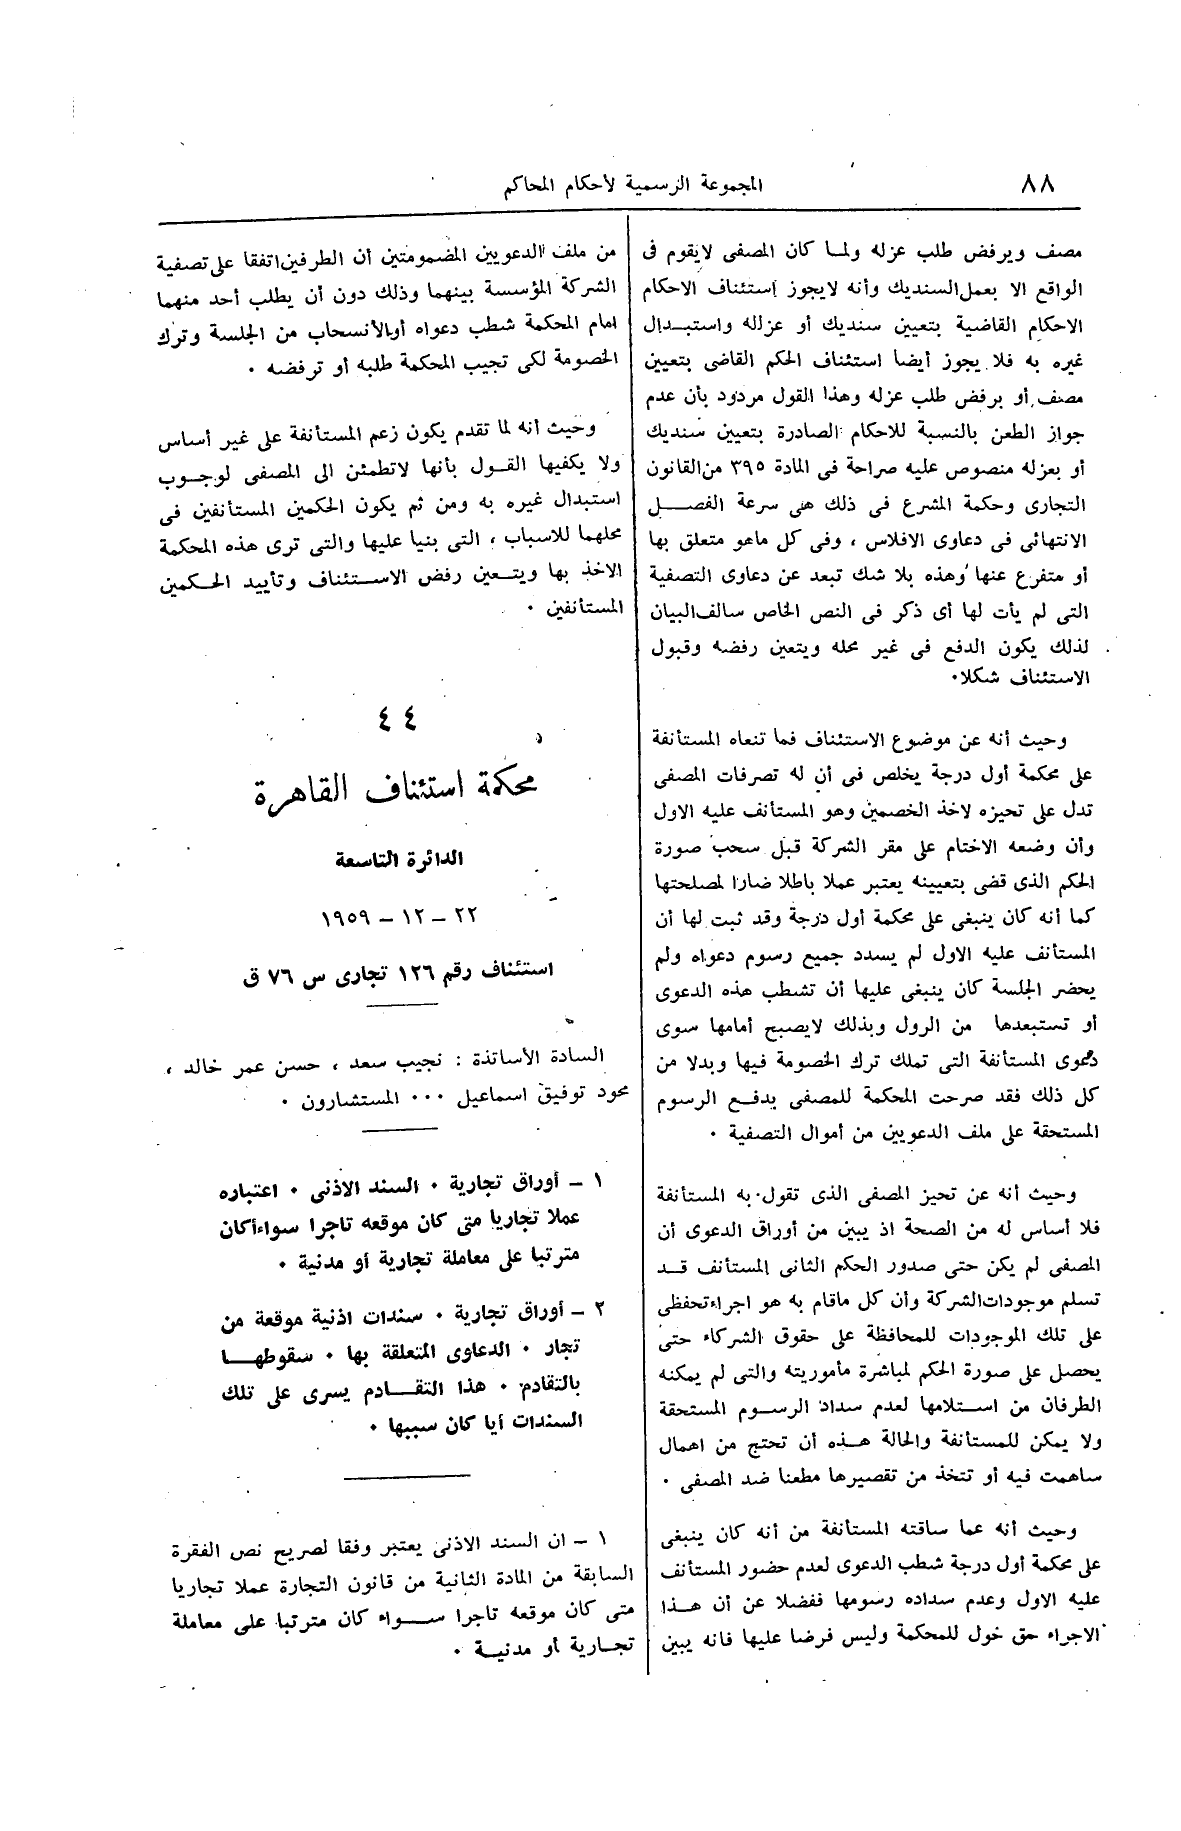 ٨٨
المجموعة الرسمية لأحكام المحاكم
مصف ويرفض طلب عزله ولمــا كان المصفى لايقوم فى
الواقع الا بعمل السنديك وأنه لايجوز إستئناف الاحكام
الاحكام القاضية بتعيين سنديك أو عزلله واستبــدال
غيره به فلا يجوز أيضا استئناف الحكم القاضى بتعيين
مصف أو برفض طلب عزله وهذا القول مردود بأن عدم
جواز الطعن بالنسبة للاحكام الصادرة بتعيين سنديك
أو بعزله منصوص عليه صراحة فى المادة ٣٩٥ من القانون
التجارى وحكمة المشرع فى ذلك هى سرعة الفصـــل
الانتهائى فى دعاوى الافلاس ، وفى كل ماهو متعلق بها
أو متفرع عنها وهذه بلا شك تبعد عن دعاوى التصفية
التى لم يأت لها أى ذكر فى النص الخاص سالف البيان
لذلك يكون الدفع فى غير محله ويتعين رفضه وقبول
الاستئناف شكلا٠
وحيث أنه عن موضوع الاستئناف فما تنعاه المستأنفة
على محكمة أول درجة يخلص فى أن له تصرفات المصفى
تدل على تحيزه لاخذ الخصمين وهو المستأنف عليه الاول
وأن وضعه الاختام على مقر الشركة قبل سحب صورة
الحكم الذى قضى بتعيينه يعتبر عملا باطلا ضارا لمصلحتها
كما أنه كان ينبغى على محكمة أول درجة وقد ثبت لها أن
المستأنف عليه الاول لم يسدد جميع رسوم دعواه ولم
يحضر الجلسة كان ينبغى عليها أن تشطب هذه الدعوى
أو تستبعدها من الرول وبذلك لايصبح أمامها سوى
دعوى المستأنفة التى تملك ترك الخصومة فيها وبدلا من
كل ذلك فقد صرحت المحكمة للمصفى بدفــع الرسوم
المستحقة على ملف الدعويين من أموال التصفية ٠
وحيث أنه عن تحيز المصفى الذى تقول به المستأنفة
فلا أساس له من الصحة اذ يبين من أوراق الدعوى أن
المصفى لم يكن حتى صدور الحكم الثانى المستأنف قــد
تسلم موجودات الشركة وأن كل ماقام به هو اجراء تحفظى
على تلك الموجودات للمحافظة على حقوق الشركاء حتى
يحصل على صورة الحكم لمباشرة مأموريته والتى لم يمكنه
الطرفان من استلامها لعدم سداد الرســوم المستحقة
ولا يمكن للمستأنفة والحالة هــذه أن تحتج من اهمال
ساهمت فيه أو تتخذ من تقصيرها مطعنا ضد المصفى ٠
وحيث أنه عما ساقته المستأنفة من أنه كان ينبغى
على محكمة أول درجة شطب الدعوى لعدم حضور المستأنف
عليه الاول وعدم سداده رسومها ففضلا عن أن هــذا
الاجراء حق خول للمحكمة وليس فرضا عليها فانه يبين
من ملف الدعويين المضمومتين أن الطرفين اتفقا على تصفية
الشركة المؤسسة بينهما وذلك دون أن يطلب أحد منهما
امام المحكمة شطب دعواه أو الأنسحاب من الجلسة وترك
الخصومة لكى تجيب المحكمة طلبه أو ترفضه ٠
وحيث أنه لما تقدم يكون زعم المستأنفة على غير أساس
ولا يكفيها القــول بأنها لاتطمئن الى المصفى لوجــوب
استبدال غيره به ومن ثم يكون الحكمين المستأنفين فى
محلهما للاسباب ، التى بنيا عليها والتى ترى هذه المحكمة
الاخذ بها ويتــعين رفض الاستئناف وتأييد الحــكمين
المستأنفين ٠
٤٤
محكمة استئناف القاهرة
الدائرة التاسعة
٢٢ – ١٢ – ١٩٥٩
استئناف رقم ١٢٦ تجارى س ٧٦ ق
السادة الأساتذة : نجيب سعد ، حسن عمر خالد ،
محود توفيق اسماعيل ٠٠٠ المستشارون ٠
١ – أوراق تجارية ٠ السند الاذنى ٠ اعتباره
عملا تجاريا متى كان موقعه تاجرا سواء أكان
مترتبا على معاملة تجارية أو مدنية ٠
٢ – أوراق تجارية ٠ سندات اذنية موقعة من
تجار ٠ الدعاوى المتعلقة بها ٠ سقوطهــا
بالتقادم ٠ هذا التقــادم يسرى على تلك
السندات أيا كان سببها ٠
١ – ان السند الاذنى يعتبر وفقا لصريح نص الفقرة
السابقة من المادة الثانية من قانون التجارة عملا تجاريا
متى كان موقعه تاجرا ســواء كان مترتبا على معاملة
تجــارية أو مدنيــة ٠